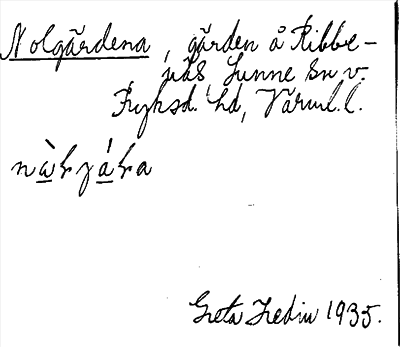 Nolgårdena, gården å Ribbe-
näs Sunne sn v.
Fryksd. hd, Värml. l.
Greta Hedin 1935.